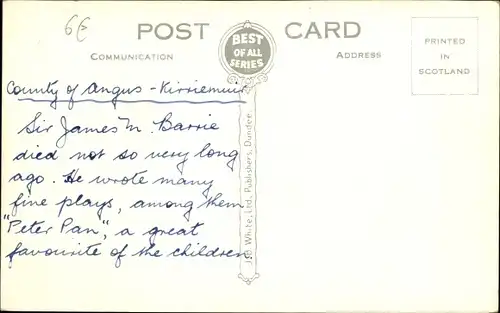 6€
POST CARD
BEST
OF ALL
SERIES
COMMUNICATION
ADDRESS
PRINTED
IN
SCOTLAND
County of Angus - Kirriemuir
Sir James M. Barrie
died not so very long
ago. He wrote many
fine plays, among them
"Peter Pan", a great
favourite of the children
White, Ltd., Publishers, Dundee